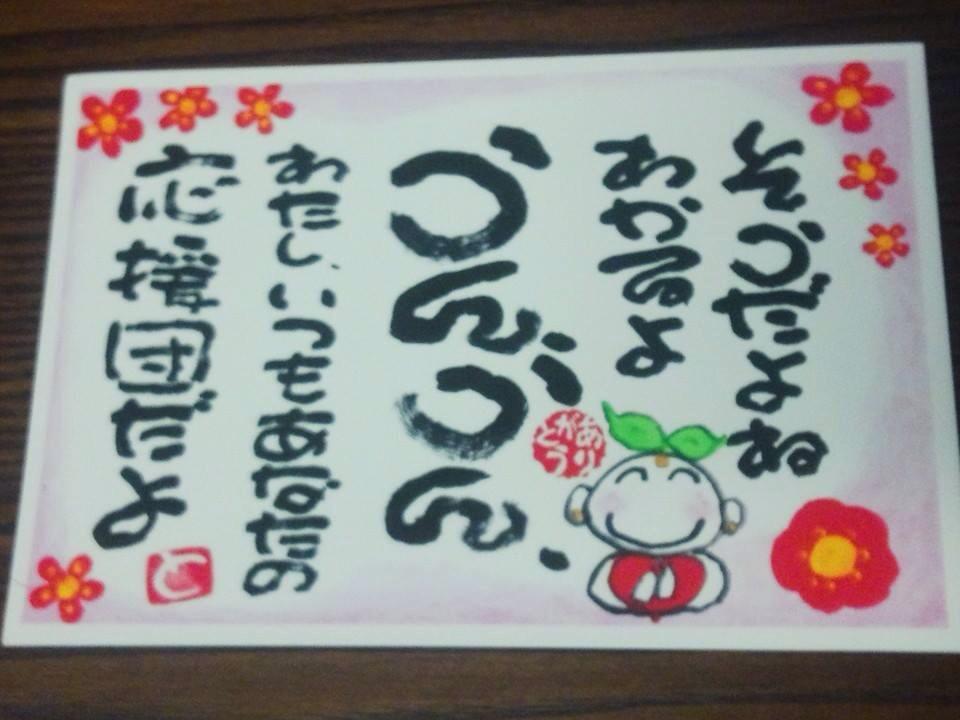 そうだよね
わかるよ
うん、うん、
わたし、いつもあなたの
応援団だよ
ありがとう